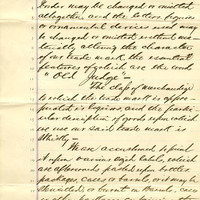 border may be changed or omitted
altogether and the letters, figures
or ornamental devices used may
be changed or omitted without ma-
terially altering the character
of our trade mark the essential
features of which are the words
"Old Judge" —
The class of merchandize
to which the trade mark is appro-
priated is liquors, and the partic-
ular description of goods upon which
we use our said trade mark is
Whisky —
We are accustomed to print
it upon labels, which
are afterwards pasted upon bottles,
packages, cases or barrels, and may be
Stenciled or burnt on barrels, cases